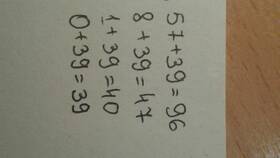 57+39=96
8+39=47
1+39=40
0+39=39